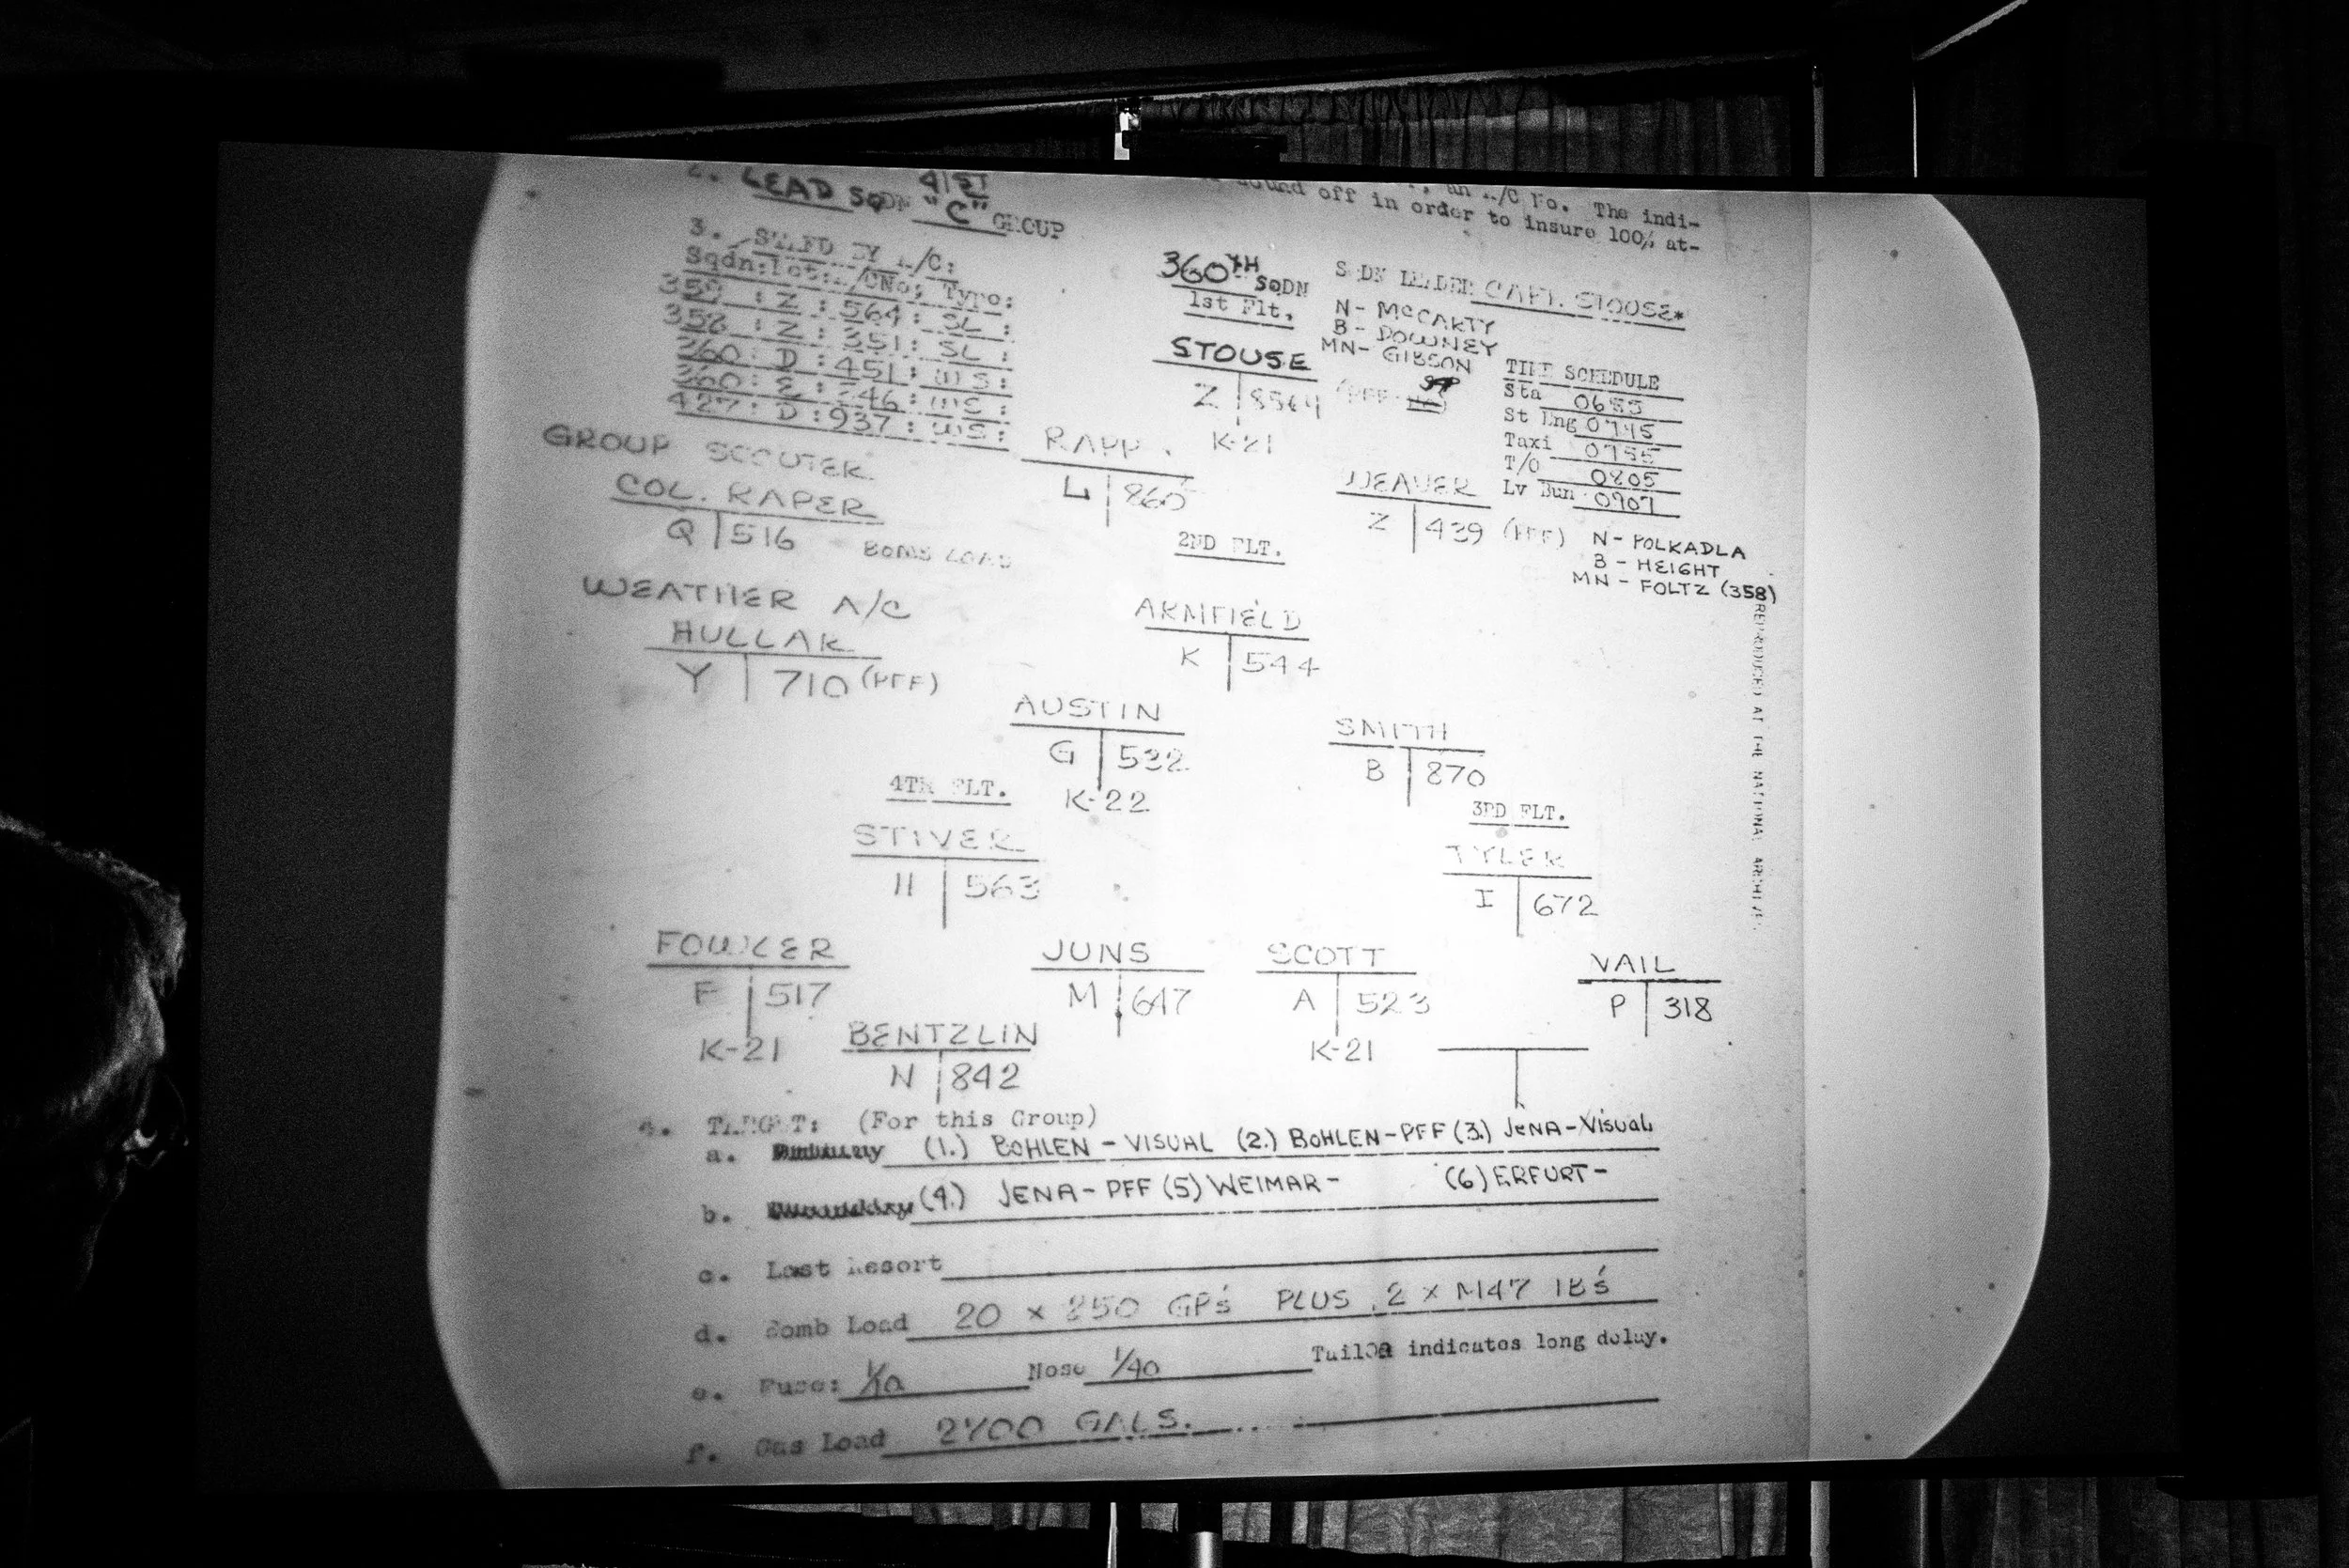 LEAD SQDN 41ST "C" GROUP
A/C No. The indi-
sound off in order to insure 100% at-
3. BY A/C:
Sqdn: Let: A/CNo; Type:
359 : Z : 564 : SL :
358 : Z : 351 : SL :
360 : D : 451 : WS :
360 : E : 46 : WS :
427 : D : 937 : WS :
360TH SQDN
1st Flt.
SQDN LEADER CAPT. STOUSE*
N- McCARTY
B- DOWNEY
MN- GIBSON
STOUSE
Z 8564 (PFF
K-21
TIME SCHEDULE
Sta
St Eng 0745
Taxi 0755
T/O 0805
Lv Bun 0907
GROUP SCOUTER
COL. RAPER
Q 516 BOMB LOAD
RAPP
L 860
WEAVER
Z 439 (PFF)
N- POLKADLA
B - HEIGHT
MN - FOLTZ (358)
2ND FLT.
WEATHER A/C
HULLAR
Y 710 (PFF)
ARMFIELD
K 544
AUSTIN
G 532
K-22
SMITH
B 870
4TH FLT.
STIVER
H 563
3RD FLT.
TYLER
I 672
FOWLER
F 517
K-21
JUNS
M 647
SCOTT
A 523
K-21
VAIL
P 318
BENTZLIN
N 842
REPRODUCED AT THE NATIONAL ARCHIVES
4. TARGET: (For this Group)
a. (1.) BOHLEN - VISUAL (2.) BOHLEN-PFF (3.) JENA-VISUAL
b. (4.) JENA-PFF (5) WEIMAR- (6) ERFURT-
c. Last Resort
d. Bomb Load 20 x 250 GP's PLUS 2 x M47 IB's
e. Fuse: 1/10 Nose 1/40 Tail indicates long delay.
f. Gas Load 2700 GALS.